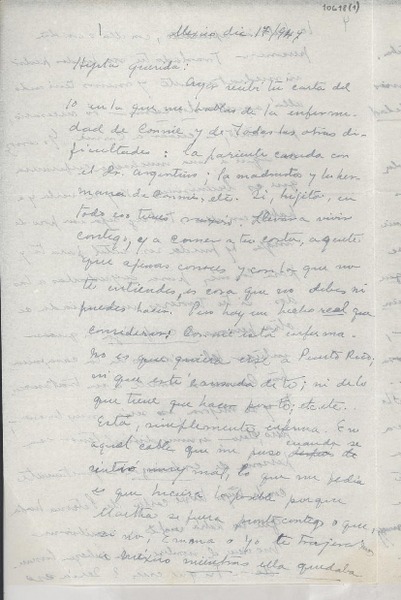 10618(1)
1
Mexico dic 17/1949
Hijita Querida:
Ayer recibi tu carta del
10 en la que me hablas de la enferme-
dad de Connie y de todas las otras di-
ficultades: la pariente casada con
el Dr. Argentino; la madrastra y la her-
mana de Connie, etc. Si, hijita, en
todo eso tienes razon. Llevar a vivir
contigo, y a comer a tu costa, a gente
que apenas conoces y con los que no
te entiendes, es cosa que no debes ni
puedes hacer. Pero hay un hecho real que
considerar: Connie está enferma.
No es que quiera irse a Puerto Rico,
ni que esté cansada de ti; ni de lo
que tiene que hacer por ti, etc etc..
Está, simplemente enferma. En
aquel cable que me puso cuando se
sintio muy mal, lo que me pedia
es que hiciera lo posible porque
Martha se fuera pronto contigo o que,
si no, Emma o Yo te trajeramos
a México mientras ella quedaba